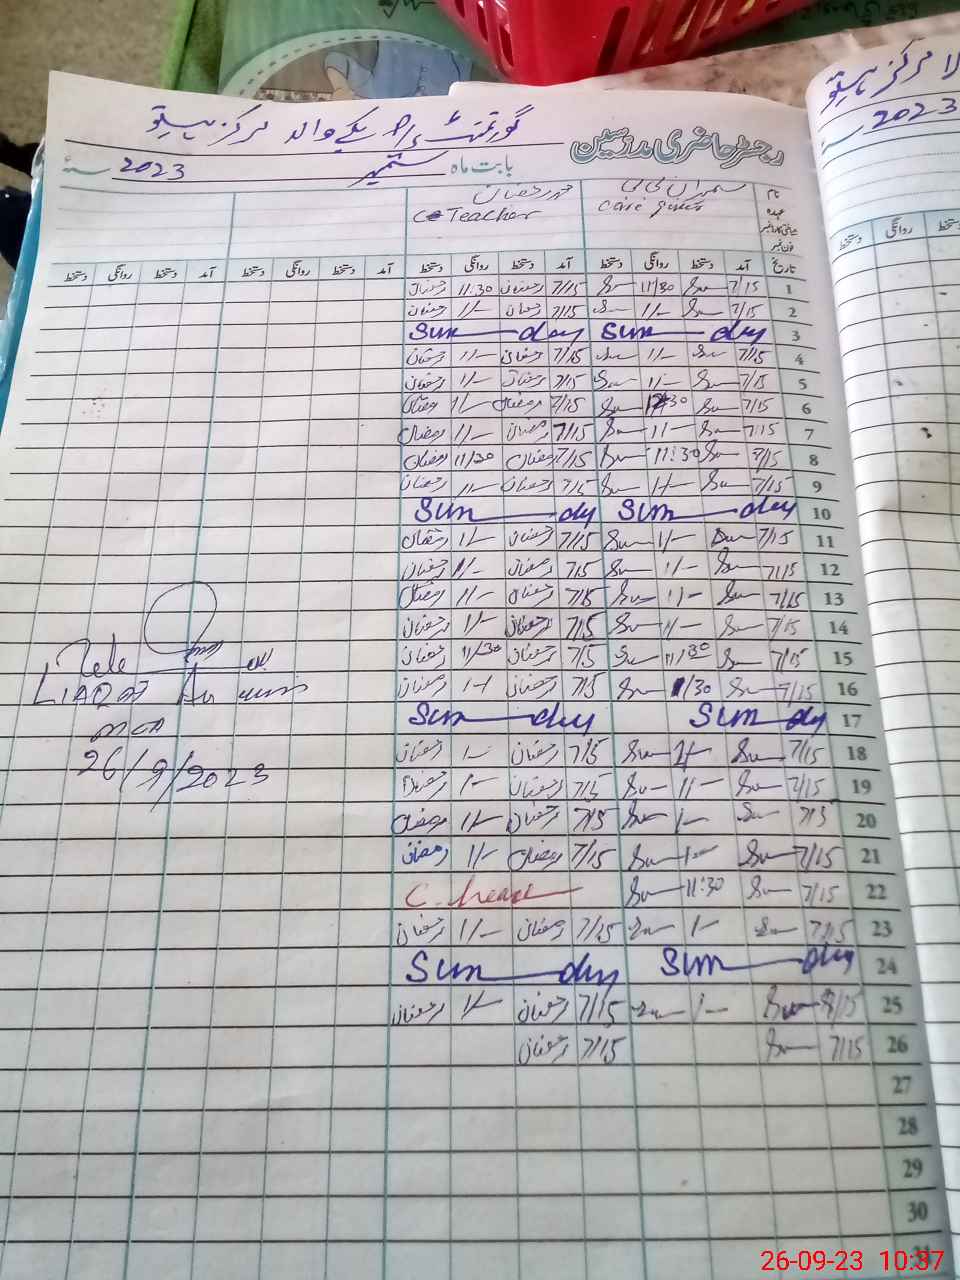 رجسٹر حاضری مدارسین گورنمنٹ
بابت ماہ ستمبر 2023 سنۂ
نام
عہدہ
Care giver
C Teacher
فون نمبر
تاریخ آمد دستخط روانگی دستخط آمد دستخط روانگی دستخط آمد دستخط روانگی دستخط آمد دستخط روانگی دستخط
1 7/15 Su 11/30 Su 7/15 رمضان 11:30 رمضان
2 7/15 Su 1/- Su 7/15 رمضان 1/- رمضان
3 Sunday Sunday
4 7/15 Su 1/- Su 7/15 رمضان 1/- رمضان
5 7/15 Su 1/- Su 7/15 رمضان 1/- رمضان
6 7/15 Su Su 7/15 رمضان 1/- رمضان
7 7/15 Su 1/- Su 7/15 رمضان 1/- رمضان
8 7/15 Su 11:30 Su 7/15 رمضان 11/30 رمضان
9 7/15 Su 1/- Su 7/15 رمضان 1/- رمضان
10 Sunday Sunday
11 7/15 Su 1/- Su 7/15 رمضان 1/- رمضان
12 7/15 Su 1/- Su 7/15 رمضان 1/- رمضان
13 7/15 Su 1/- Su 7/15 رمضان 1/- رمضان
14 7/15 Su 1/- Su 7/15 رمضان 1/- رمضان
15 7/15 Su 11/30 Su 7/15 رمضان 11/30 رمضان
16 7/15 Su Su 7/15 رمضان رمضان
17 Sunday Sunday
18 7/15 Su Su 7/15 رمضان 1/- رمضان
19 7/15 Su 1/- Su 7/15 رمضان 1/- رمضان
20 7/15 Su 1/- Su 7/15 رمضان 1/- رمضان
21 7/15 Su 1/- Su 7/15 رمضان 1/- رمضان
22 7/15 Su 11:30 Su C. leave
23 7/15 Su 1/- Su 7/15 رمضان 1/- رمضان
24 Sunday Sunday
25 7/15 Su 1/- Su 7/15 رمضان 1/- رمضان
26 7/15 Su 7/15 رمضان
27
28
29
30
31
LIAQAT
MEA
26/9/2023
2023
روانگی
26-09-23 10:37